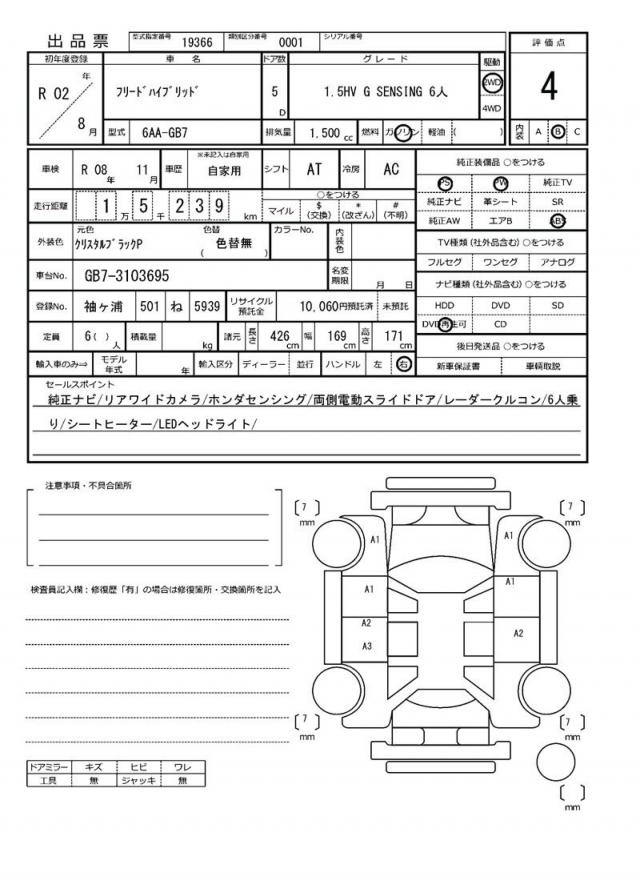 出品票 型式指定番号 19366 類別区分番号 0001 シリアル番号
初年度登録 車名 ドア数 グレード 駆動 評価点
R 02 年 8 月 フリードハイブリッド 5 D 1.5HV G SENSING 6人 2WD 4WD 4
型式 6AA-GB7 排気量 1.500 cc 燃料 ガソリン 軽油 ( ) 内装 A B C
車検 R 08 年 11 月 車歴 ※未記入は自家用 自家用 シフト AT 冷房 AC 純正装備品 ○をつける
PS PW 純正TV
走行距離 1 万 5 千 2 3 9 km ○をつける マイル $ (交換) * (改ざん) # (不明) 純正ナビ 革シート SR
純正AW エアB ABS
外装色 元色 クリスタルブラックP 色替 ( 色替無 ) カラーNo. 内装色 TV種類 (社外品含む) ○をつける
フルセグ ワンセグ アナログ
車台No. GB7-3103695 名変期限 月 日 ナビ種類 (社外品含む) ○をつける
登録No. 袖ヶ浦 501 ね 5939 リサイクル預託金 10,060円預託済 未預託 HDD DVD SD
DVD再生可 CD
定員 6( ) 人 積載量 kg 諸元 長さ 426 cm 幅 169 cm 高さ 171 cm 後日発送品 ○をつける
輸入車のみ⇒ モデル年式 年 輸入区分 ディーラー 並行 ハンドル 左 右 新車保証書 車輌取説
セールスポイント
純正ナビ/リアワイドカメラ/ホンダセンシング/両側電動スライドドア/レーダークルコン/6人乗
り/シートヒーター/LEDヘッドライト/
注意事項・不具合箇所
[ 7 ] mm [ 7 ] mm
A1 A1
検査員記入欄：修復歴「有」の場合は修復箇所・交換箇所を記入
A1 A1
A2 A2
A3
[ 7 ] mm [ 7 ] mm
ドアミラー キズ ヒビ ワレ
工具 無 ジャッキ 無
[ ] mm